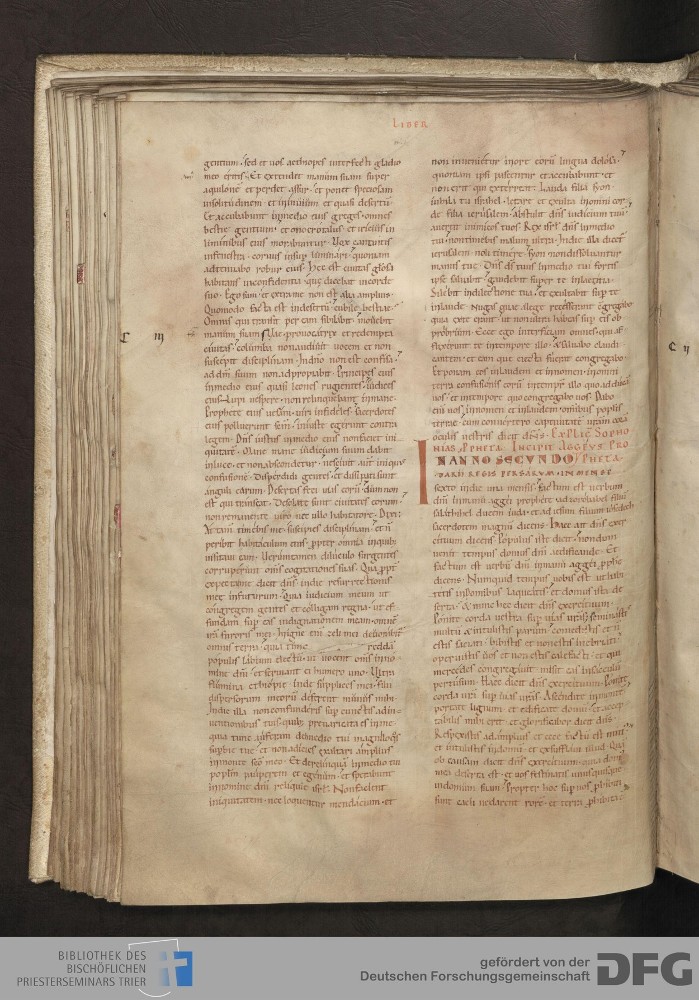 LIBER
gentium. Sed et uos aethiopes interfecti gladio
meo eritis. Et extendet manum suam super
aquilonē et perdet assur. et ponet speciosam
insolitudinem. et inuium et quasi desertū.
Et accubabunt inmedio eius greges. omnes
bestie gentium. et onocrotalus. et ericius in
liminibus eius morabuntur. Vox cantantis
infenestra. coruus insup liminari. quoniam
adtenuabo robur eius. Hec est ciuitas glōsa
habitans inconfidentia. que dicebat incorde
suo. Ego sum. et extra me non est alia amplius.
Quomodo facta est indesertū cubile bestiae.
Omnis qui transit per eam sibilabit. mouebit
manum suam. Vae prouocatrix et redempta
ciuitas columba. non audiuit uocem et non
suscepit disciplinam. Indn̄o non est confisa.
ad dm̄ suum non adpropiauit. Principes eius
inmedio eius quasi leones rugientes. iudices
eius lupi uespere. non relinquebant inmane.
Prophete eius uesani. uiri infideles. sacerdotes
eius polluerunt scm̄. iniuste egerunt contra
legem. Dn̄s iustus inmedio eius non faciet ini
quitatē. Mane mane iudicium suum dabit
inluce. et non abscondetur. nesciuit autē iniqus
confusionē. Disperdidi gentes. et dissipati sunt
anguli earum. Desertas feci uias eorū dum non
est qui transeat. Desolate sunt ciuitates eorum.
non remanente uiro nec ullo habitatore. Dixi.
Attam timebis me. suscipies disciplinam. et n̄
peribit habitaculum eius. propter omnia inquib;
uisitaui eam. Verumtamen diluculo surgentes
corruperunt om̄s cogitationes suas. Qua ppt̄
expecta me dicit dn̄s. indie resurrectionis
meę infuturum. Quia iudicium meum ut
congregem gentes et colligam regna. ut ef
fundam sup eas indignationem meam. omnē
irā furoris mei. Inigne em̄ zeli mei deuorabit̄
omnis terra. quia tunc reddam
populis labium electū. ut uocent om̄s inno
mine dn̄i. et seruiant ei humero uno. Vltra
flumina ethiopię. Inde supplices mei. filii
dispersorum meorū deferent munus mihi.
Indie illa non confunderis sup cunctis adin
uentionibus tuis. quib; preuaricata es inme.
quia tunc auferam demedio tui magniloqos
supbie tuę. et non adicies exaltari amplius
inmonte sc̄o meo. Et derelinquā inmedio tui
poplm̄ pauperem et egenum. et sperabunt
innomine dn̄i reliquie isrl̄. Non facient
iniquitatem. nec loquentur mendacium. et
C III
non inuenietur inore eorū lingua dolosa.
quoniam ipsi pascentur et accubabunt. et
non erit qui exterreat. Lauda filia syon.
iubila tu israhel. letare et exulta inomni cor
de filia ierusalem. Abstulit dn̄s iudicium tuū.
auertit inimicos tuos. Rex isrl̄ dn̄s inmedio
tui. non timebis malum ultra. Indie illa dicet̄
ierusalem. noli timere. syon non dissoluantur
manus tuę. Dn̄s ds̄ tuus inmedio tui fortis
ipse saluabit. gaudebit super te inlaeticia.
Silebit indilectione tua. et exultabit sup te
inlaude. Nugas quae a lege recesserant c̄gregabo.
quia exte erant. ut non ultra habeas sup eis ob
probrium. Ecce ego interficiam omnes. qui af
flixerunt te intempore illo. Et saluabo claudi
cantem. et eam que eiecta fuerat congregabo.
Et ponam eos inlaudem et innomen. inomni
terra confusionis eorū. intempr̄ illo quo adducā
uos. et intempore quo congregabo uos. Dabo
em̄ uos innomen et inlaudem omibus poplis
terrae. cum conuertero captiuitatē ur̄am corā
oculis uestris dicit dn̄s. EXPLIC̄ SOPHO
NIAS PPHETA. INCIPIT AGGEVS PRO
IN ANNO SECVNDO PHETA.
DARII REGIS PERSARVM. IN MENSE
sexto indie una mensis. factum est uerbum
dn̄i inmanu aggei prophete ad zorobabel filiū
salathihel ducem iuda. et ad iesum filium iosedech
sacerdotem magnū dicens. Haec ait dn̄s exer
cituum dicens. Populus iste dicit. nondum
uenit tempus domus dn̄i aedificande. Et
factum est uerbū dn̄i inmanu aggei pphe
dicens. Numquid tempus uobis est ut habi
tetis indomibus laqueatis. et domus ista de
serta. Et nunc hec dicit dn̄s exercituum.
Ponite corda uestra sup uias uras. Seminastis
multū et intulistis parum. comedistis et n̄
estis satiati. bibistis et non estis inebriati.
operuistis uos et non estis calefacti. et qui
mercedes congregauit. misit eas insacculū
pertusum. Haec dicit dn̄s exercituum. Ponite
corda ura sup uias uras. Ascendite inmonte
portate lignum. et edificate domū. et accep
tabilis mihi erit. et glorificabor dicit dn̄s.
Respexistis ad amplius et ecce factū est minꝰ.
et intulistis indomū et exsufflaui illud. Quā
ob causam dicit dn̄s exercituum. quia domꝰ
mea deserta est. et uos festinatis unusquisque
indomum suam. Propter hoc sup uos phibiti
sunt caeli nedarent rorē. et terra phibita ē
C II
BIBLIOTHEK DES
BISCHÖFLICHEN
PRIESTERSEMINARS TRIER
gefördert von der
Deutschen Forschungsgemeinschaft
DFG